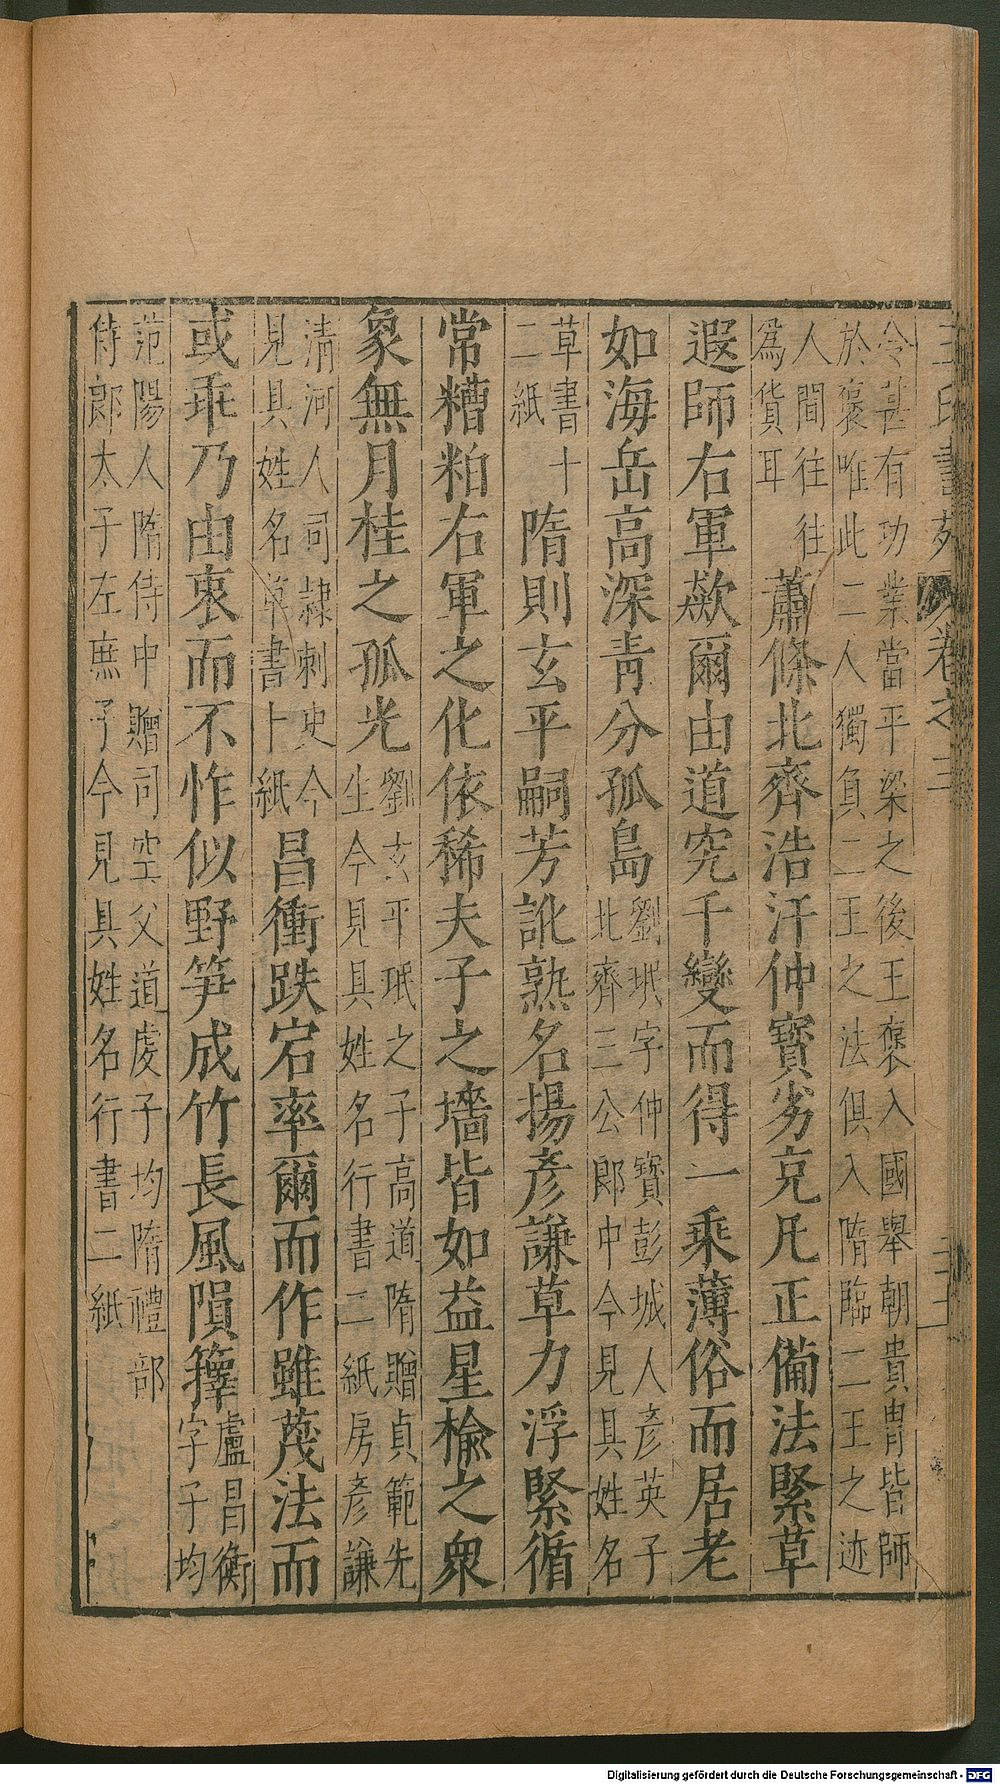 王氏書苑 卷之三
令甚有功業當平梁之後王褒入國舉朝貴胄皆師
於褒唯此二人獨負二王之法俱入隋臨二王之迹
人間往往
為貨耳
蕭條北齊浩汗仲寶劣克凡正備法緊草
遐師右軍歘爾由道究千變而得一乘薄俗而居老
如海岳高深青分孤島
劉珉字仲寶彭城人彥英子
北齊三公郎中今見具姓名
草書十
二紙
隋則玄平嗣芳訛熟名揚彥謙草力浮緊循
常糟粕右軍之化依稀夫子之墻皆如益星榆之衆
象無月桂之孤光
劉玄平珉之子高道隋贈貞範先
生今見具姓名行書二紙房彥謙
清河人司隸刺史今
見具姓名草書卜紙
昌衡跌宕率爾而作雖茂法而
或乖乃由衷而不怍似野笋成竹長風隕籜
盧昌衡
字子均
范陽人隋侍中贈司空父道虔子均隋禮部
侍郎太子左庶子今見具姓名行書二紙
Digitalisierung gefördert durch die Deutsche Forschungsgemeinschaft - DFG